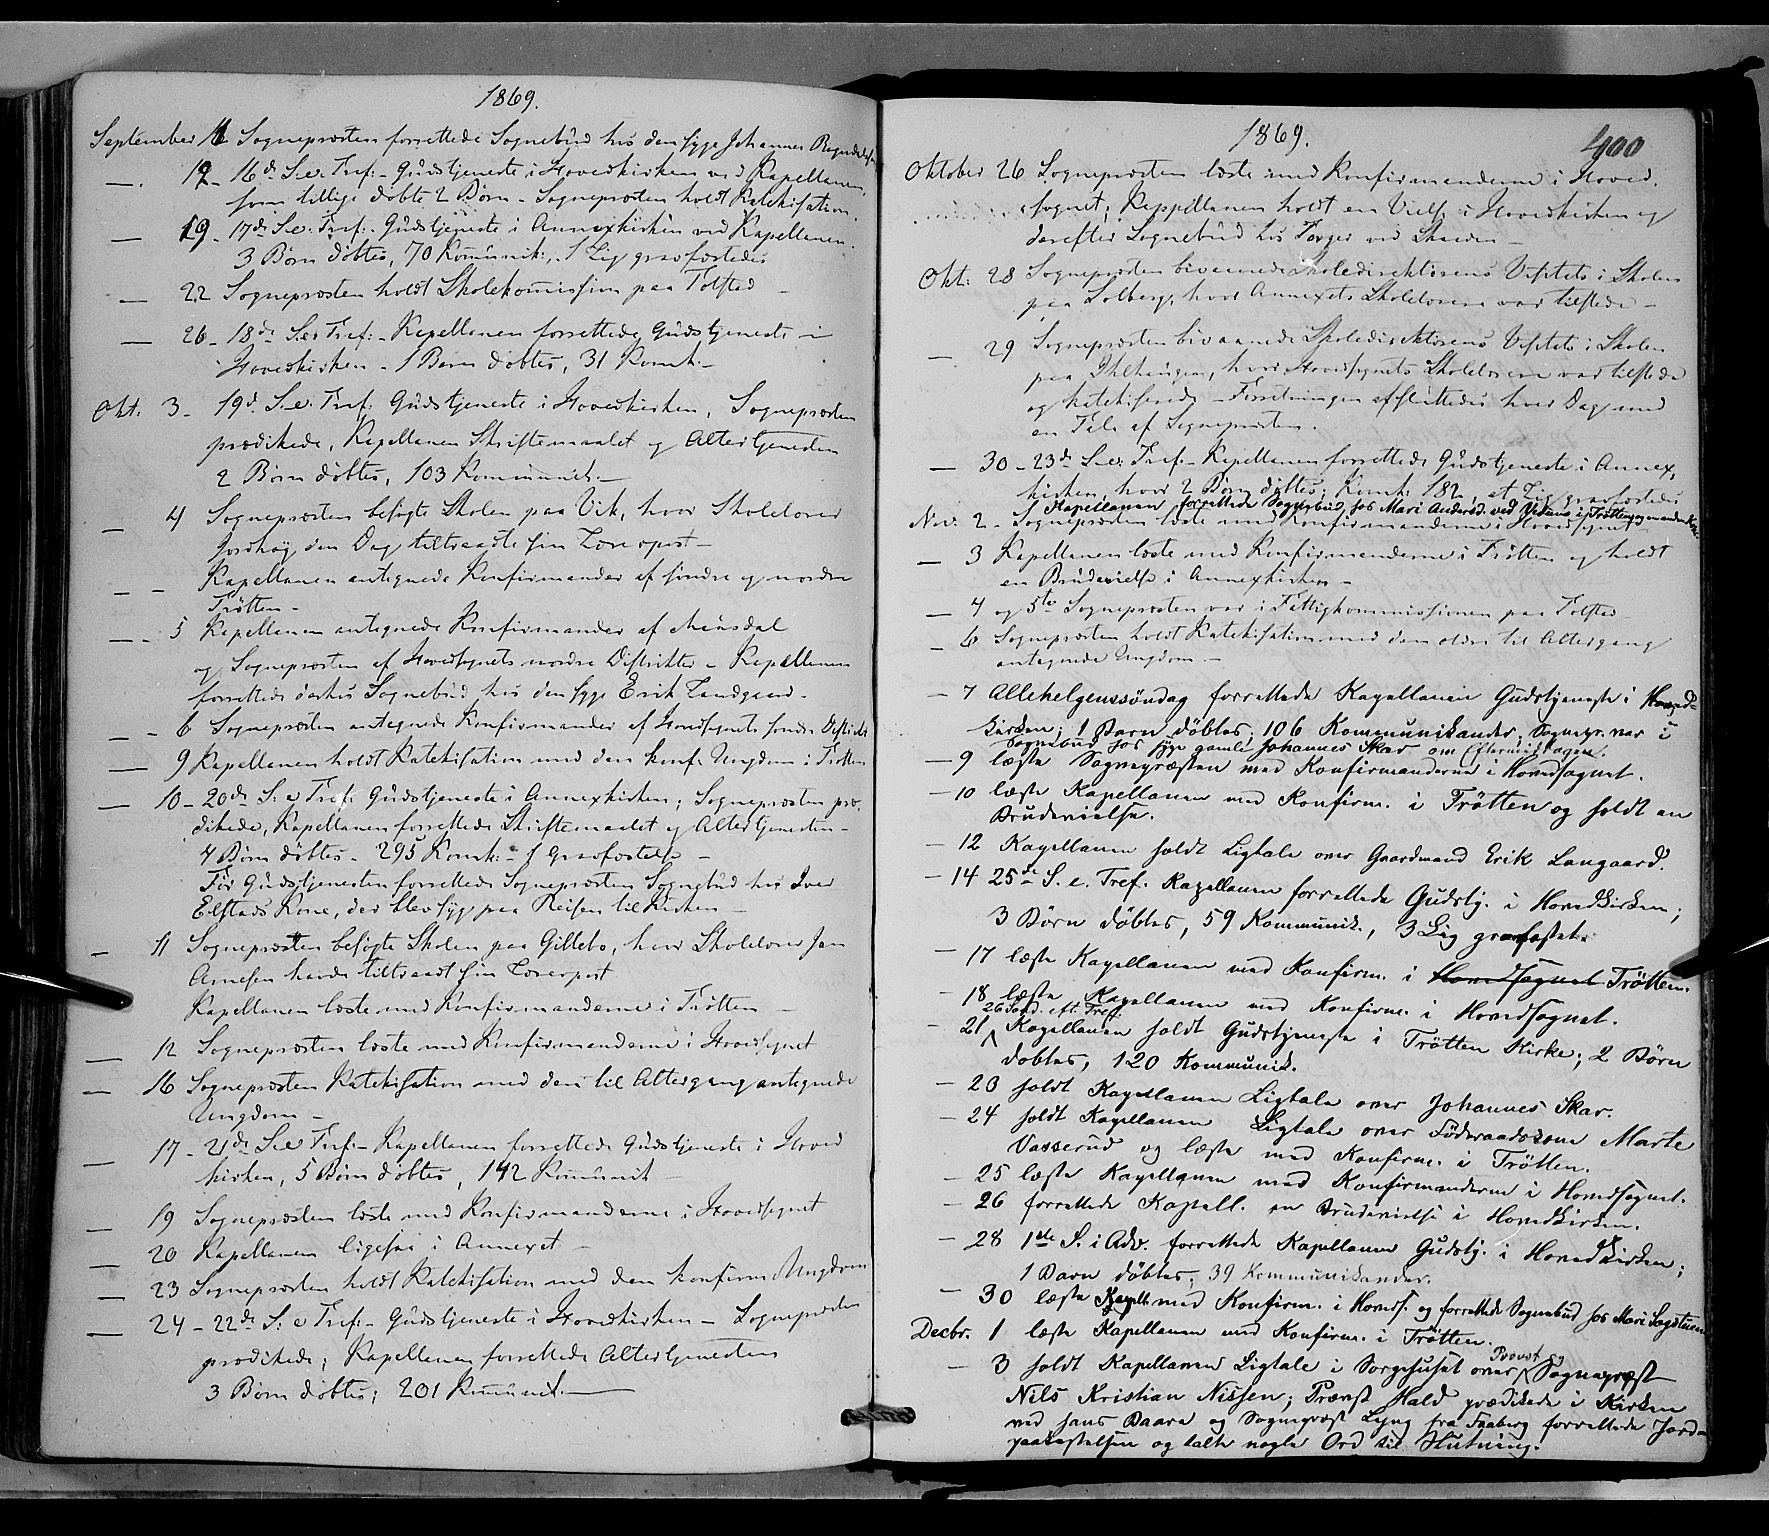 1869.
September 11 Sognepræsten forrettede Sognebud hos den syge Johannes
—. 12 - 16de S. e. Tref. - Gudstjeneste i Hovedkirken ved Kapellanen,
som tillige døbte 2 Børn - Sognepræsten holdt Katekisation.
— 19 - 17de S. e. Tref. - Gudstjeneste i Annexkirken ved Kapellanen.
3 Børn döbtes, 70 Komunik:, 1 Lig gravfæstedes
— 22 Sognepræsten holdt Skolekomission paa Tolstad —
— 26 - 18de S. e. Tref: - Kapellanen forrettede Gudstjeneste i
Hovedkirken - 1 Barn döbtes, 31 Komk. —
Okt. 3 - 19d. S. e. Tref: Gudstjeneste i Hovedkirken, Sognepræsten
prædikede, Kapellanen Skriftemaalet og Altertjenesten
2 Børn döbtes, 103 Kommunik. —
— 4 Sognepræsten besøgte Skolen paa Vik, hvor Skolelærer
Jordhøy den Dag tiltraadte sin Lærerpost —
— - Kapellanen antegnede Konfirmander af søndre og nordre
Trötten -
— - 5 Kapellanen antegnede Konfirmander af Musdal
og Sognepræsten af Hovedsognets nordre Distrikter - Kapellanen
forrettede derhos Sognebud hos den syge Erik Landgaard.
— - 6 Sognepræsten antegnede Konfirmander af Hovedsognets søndre Distrikt
— 9 Kapellanen holdt Katekisation med den konf. Ungdom i Trötten
— 10 - 20de S. e Tref. Gudstjeneste i Annexkirken; Sognepræsten præ-
dikede, Kapellanen forrettede Skriftemaalet og Altertjenesten -
4 Børn döbtes - 295 Komk: - 1 Gravfæstelse -
Før Gudstjenesten forrettede Sognepræsten Sognebud hos Iver
Elstads Kone, der blev syg paa Reisen til Kirken —
— 11 Sognepræsten besøgte Skolen paa Gillebo, hvor Skolelærer Jan
Arnesen havde tiltraadt sin Lærerpost
Kapellanen læste med Konfirmanderne i Trötten —
— 12 Sognepræsten læste med Konfirmanderne i Hovedsognet
— 16 Sognepræsten Katekisation med den til Altergang antegnede
Ungdom —
— 17 - 21de S. e Tref. - Kapellanen forrettede Gudstjeneste i Hoved
kirken, 5 Børn döbtes, 142 Komunik —
— 19 Sognepræsten læste med Konfirmanderne i Hovedsognet
— 20 Kapellanen ligesaa i Annexet —
— 23 Sognepræsten holdt Katekisation med den konfirm. Ungdom
— 24 - 22de S. e Tref: - Gudstjeneste i Hovedkirken - Sognepræsten
prædikede; Kapellanen forrettede Altertjenesten
3 Børn döbtes; 201 Kommunik. —
1869.
400
Oktober 26 Sognepræsten læste med Konfirmanderne i Hoved-
sognet; Kappellanen holdt en Vielse i Hovedkirken og
derefter Sognebud hos Torger ved
Okt: 28 Sognepræsten bivaanede Skoledirektørens Visitats i Skolen
paa Solberg, hvor Annexets Skolelærere var tilstede —
— 29 Sognepræsten bivaanede Skoledirektørens Visitats i Skolen
paa, hvor Hovedsognets Skolelærere var tilstede
og katekiserede - Forretningen afsluttedes hver Dag med
en Tale af Sognepræsten.
— 30 - 23de S. e. Tref. - Kapellanen forrettede Gudstjeneste i Annex,
kirken, hvor 2 Børn döbtes; Komk: 182, et Lig gravfæstedes
Kapellanen forrettede Sognebud hos Mari Andersd. ved i Trötten
Nov. 2 - Sognepræsten læste med Konfirmanderne i Hovedsognet
— 3 Kapellanen læste med Konfirmanderne i Trötten og holdt
en Brudevielse i Annexkirken —
— 4 og 5te Sognepræsten var i Fattigkommissionen paa Tolstad
— 6 Sognepræsten holdt Katekisation med den ældre til Altergang
antegnede Ungdom. —
— 7 Allehelgenssöndag forrettede Kapellanen Gudstjeneste i Hoved-
kirken; 1 Barn döbtes; 106 Kommunikander. Sognepr. var i
Sognebud hos syge gamle Johannes Skar om Eftermiddagen.
— 9 læste Sognepræsten med Konfirmanderne i Hovedsognet.
— 10 læste Kapellanen med Konfirm. i Trötten og holdt en
Brudevielse.
— 12 Kapellanen holdt Ligtale over Gaardmand Erik Langaard.
— 14 25de S. e. Tref. Kapellanen forrettede Gudstj. i Hovedkirken;
3 Börn döbtes, 59 Kommunik., 3 Lig gravfæstet.
— 17 læste Kapellanen med Konfirm. i Hovedsognet Trötten.
— 18 læste Kapellanen med Konfirm. i Hovedsognet.
26 Sönd. eft. Tref.
— 21 Kapellanen holdt Gudstjeneste i Trötten Kirke; 2 Börn
döbtes, 120 Kommunik.
— 23 holdt Kapellanen Ligtale over Johannes Skar.
— 24 holdt Kapellanen Ligtale over Föderaadskone Marte
Vasserud og læste med Konfirm. i Trötten.
— 25 læste Kapellanen med Konfirmanderne i Hovedsognet.
— 26 forrettede Kapell. en Brudevielse i Hovedkirken.
— 28 1ste S. i Adv. forrettede Kapellanen Gudstj. i Hovedkirken;
1 Barn döbtes; 39 Kommunikander.
— 30 læste Kapell. med Konfirm. i Hoveds. og forrettede Sognebud hos Mari Sagstuen
Decbr. 1 læste Kapellanen med Konfirm. i Trötten.
Provst og
— 3 holdt Kapellanen Ligtale i Sorgehuset over Sognepræst
Nils Kristian Nissen; Provst Hald prædikede i Kirken
ved hans Baare og Sognepræst Lyng fra Faaberg forrettede Jords
paakastelsen og talte nogle Ord til Slutning.